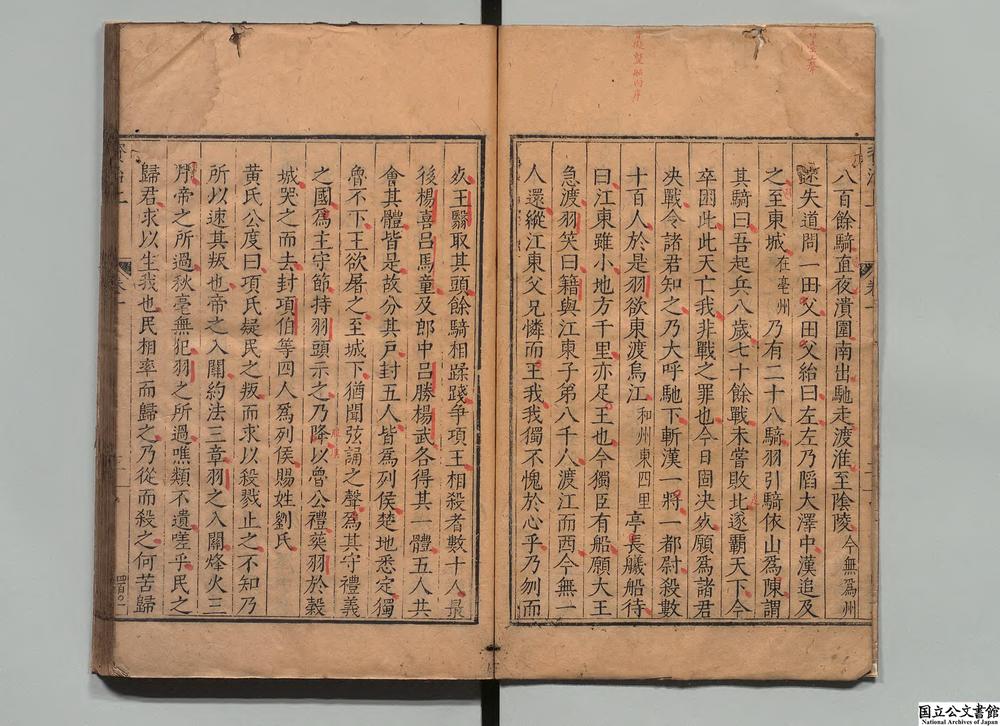 八百餘騎直夜潰圍南出馳走渡淮至陰陵今無爲州
迷失道問一田父田父紿曰左左乃陷大澤中漢追及
之至東城在亳州乃有二十八騎羽引騎依山爲陳謂
其騎曰吾起兵八歲七十餘戰未嘗敗北遂覇天下今
卒困此此天亡我非戰之罪也今日固决死願爲諸君
决戰令諸君知之乃大呼馳下斬漢一將一都尉殺數
十百人於是羽欲東渡烏江和州東四里亭長艤船待
曰江東雖小地方千里亦足王也今獨臣有船願大王
急渡羽笑曰籍與江東子弟八千人渡江而西今無一
人還縱江東父兄憐而王我我獨不愧於心乎乃刎而
死王翳取其頭餘騎相蹂踐争項王相殺者數十人最
後楊喜吕馬童及郎中吕勝楊武各得其一體五人共
會其體皆是故分其戸封五人皆爲列侯楚地悉定獨
魯不下王欲屠之至城下猶聞弦誦之聲爲其守禮義
之國爲主守節持羽頭示之乃降以魯公禮葬羽於榖
城哭之而去封項伯等四人爲列侯賜姓劉氏
黄氏公度曰項氏疑民之叛而求以殺戮止之不知乃
所以速其叛也帝之入關約法三章羽之入關烽火三
月帝之所過秋毫無犯羽之所過噍類不遺嗟乎民之
歸君求以生我也民相率而歸之乃從而殺之何苦歸
四百〇一
国立公文書館
National Archives of Japan